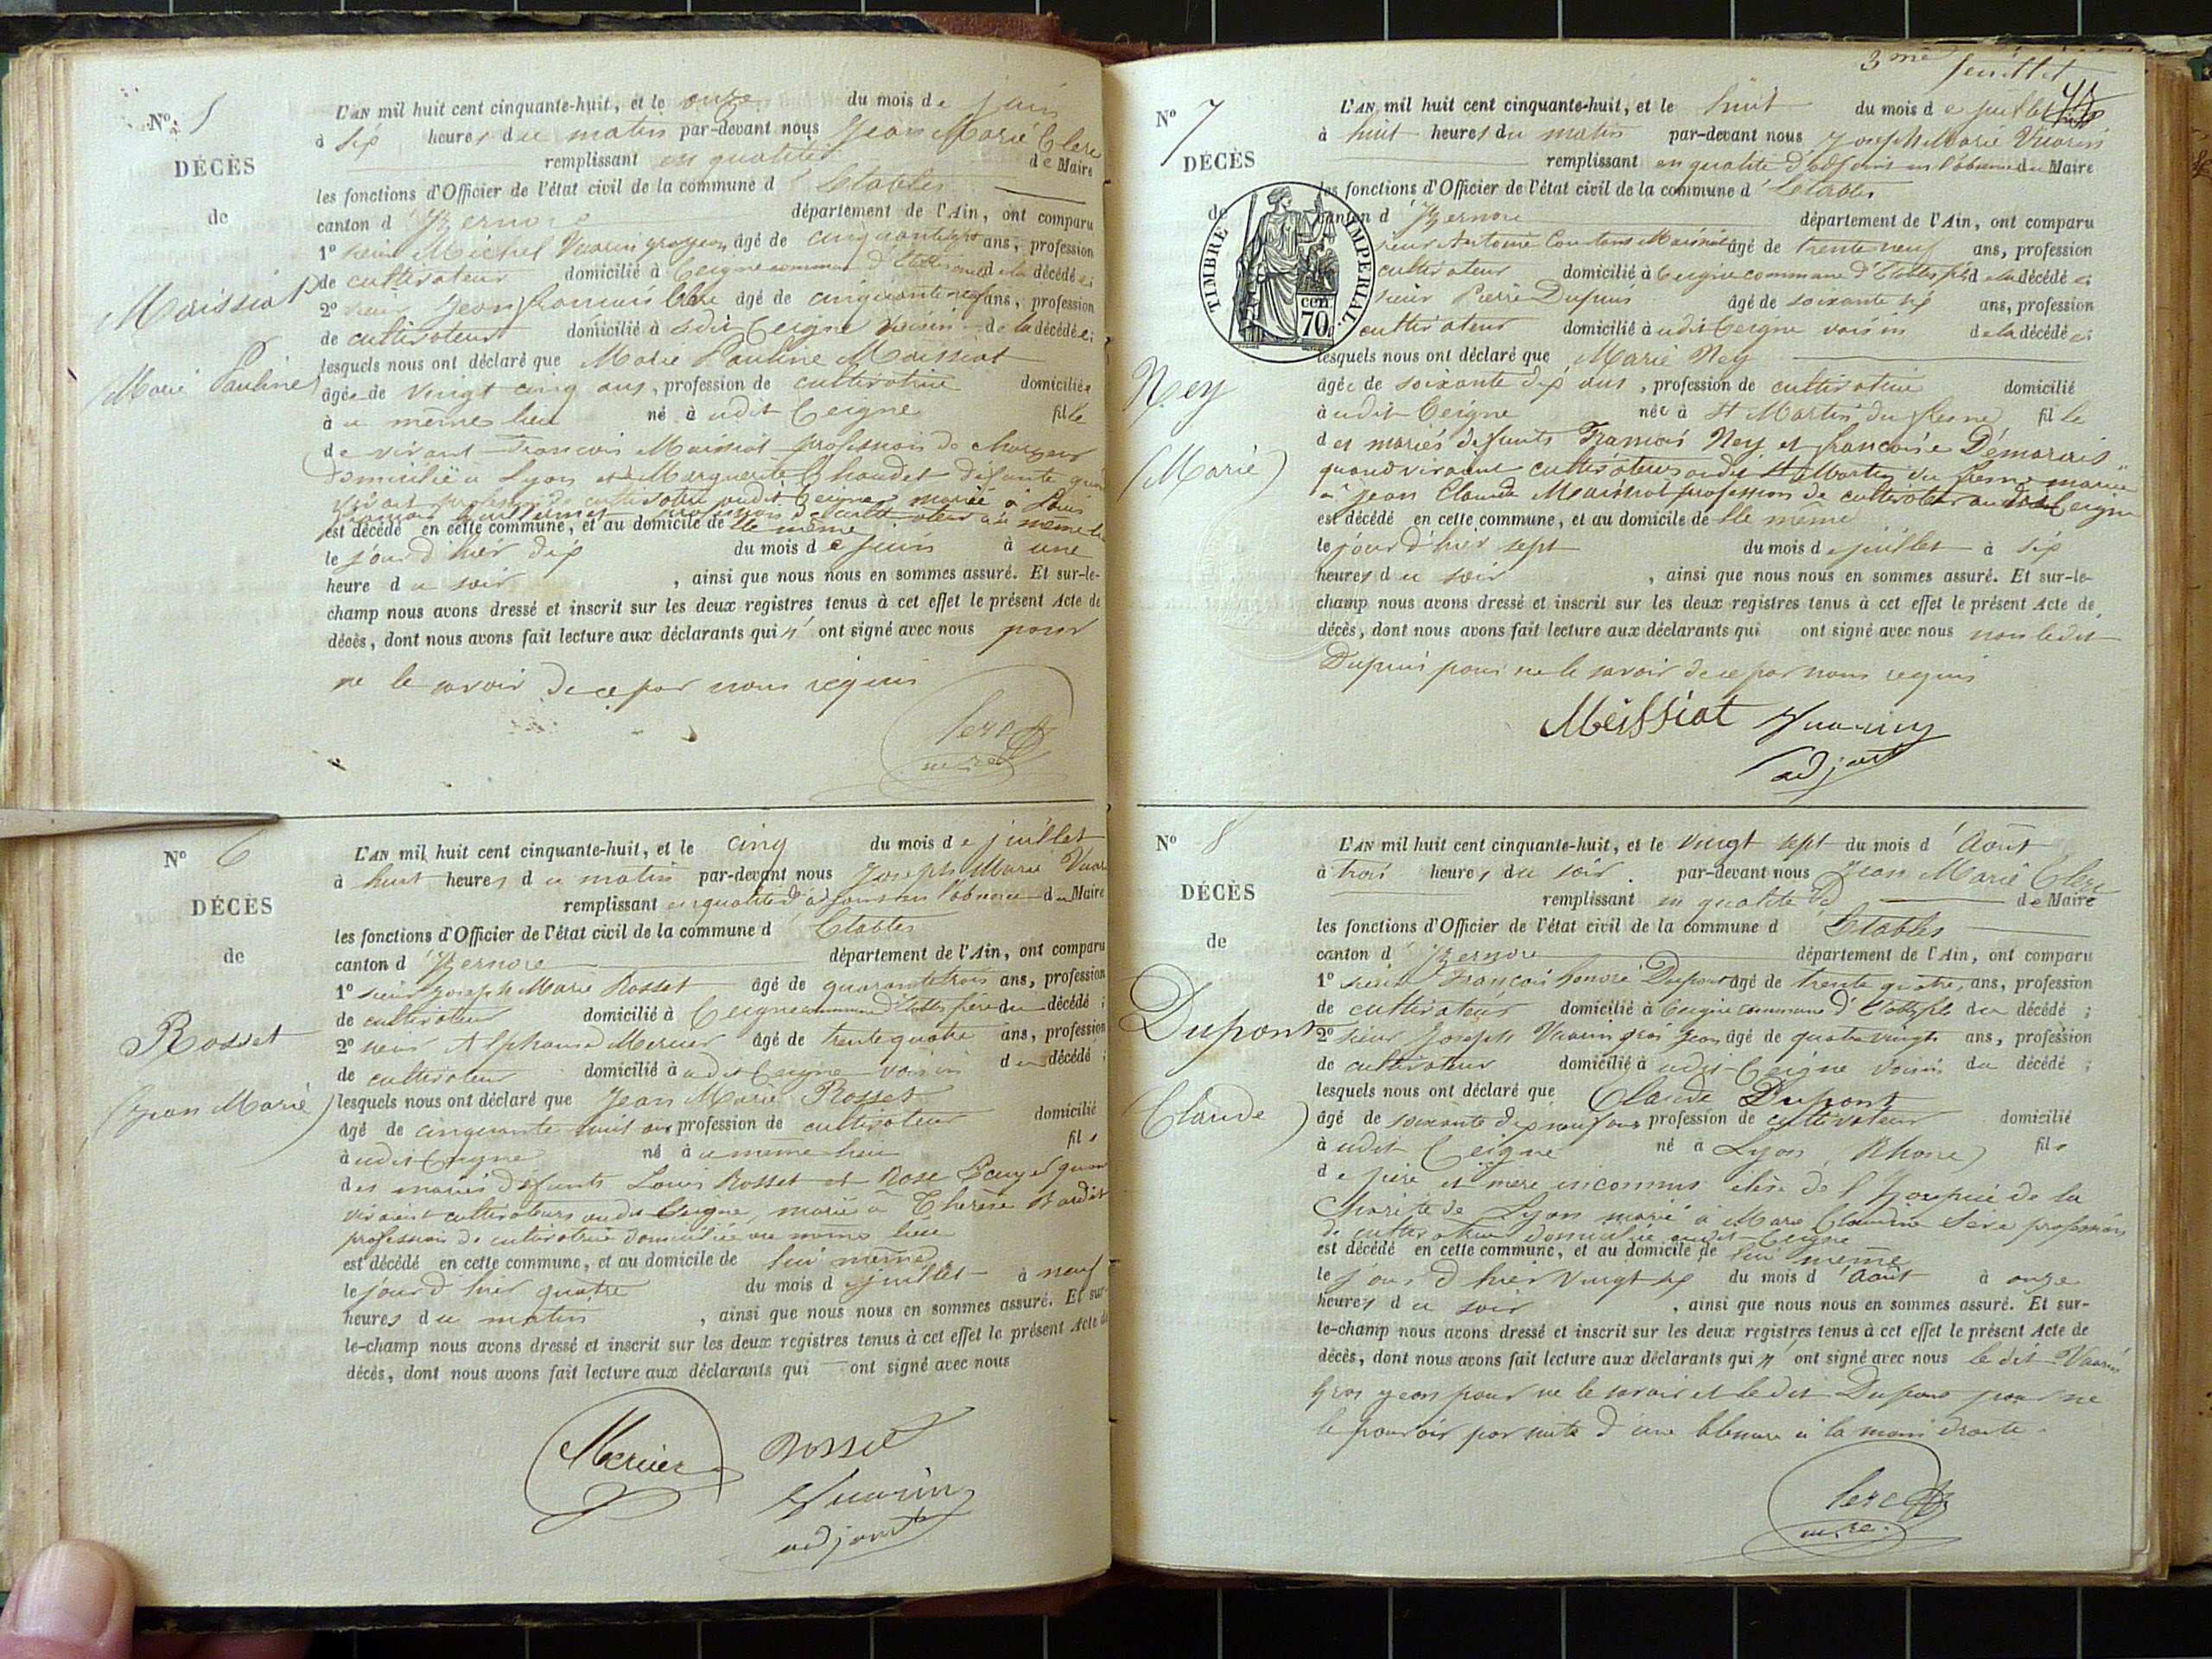 N° 5
DÉCÈS
de
Maissiat
(Marie Pauline)
L'AN mil huit cent cinquante-huit, et le onze du mois de juin
à six heures du matin par-devant nous Jean Marie Clerc
remplissant en qualité de Maire
les fonctions d'Officier de l'état civil de la commune d' Etables
canton d' Izernore département de l'Ain, ont comparu
1° sieur Michel Vuarin âgé de ans, profession
de cultivateur domicilié à Ceigne commune d'Etables de la décédée;
2° sieur Jean François âgé de ans, profession
de cultivateur domicilié à sedit Ceigne voisin de la décédée;
lesquels nous ont déclaré que Marie Pauline Maissiat
âgée de vingt cinq ans, profession de cultivatrice domiciliée
à u même lieu né à udit Ceigne fille
de vivant François Maissiat profession de
domicilié à Lyon et Marguerite Chaudet défunte quand
vivait profession de cultivatrice audit Ceigne mariée à Louis
est décédé en cette commune, et au domicile de lle même
le jour d'hier dix du mois de juin à une
heure du soir, ainsi que nous nous en sommes assuré. Et sur-le-
champ nous avons dressé et inscrit sur les deux registres tenus à cet effet le présent Acte de
décès, dont nous avons fait lecture aux déclarants qui n' ont signé avec nous pour
ne le savoir de ce par nous requis
Clerc
maire
N° 6
DÉCÈS
de
Rosset
(Jean Marie)
L'AN mil huit cent cinquante-huit, et le cinq du mois de juillet
à huit heures du matin par-devant nous Joseph Marie Vuarin
remplissant en qualité d'adjoint en l'absence du Maire
les fonctions d'Officier de l'état civil de la commune d' Etables
canton d' Izernore département de l'Ain, ont comparu
1° sieur Joseph Marie Rosset âgé de quarante trois ans, profession
de cultivateur domicilié à Ceigne commune d'Etables frère du décédé;
2° sieur Alphonse Mercier âgé de trente quatre ans, profession
de cultivateur domicilié à udit Ceigne voisin du décédé;
lesquels nous ont déclaré que Jean Marie Rosset
âgé de cinquante huit ans profession de cultivateur domicilié
à udit Ceigne né à u même lieu fils
des mariés défunts Louis Rosset et Rose quand
vivaient cultivateurs audit Ceigne, marié à Thérèse
profession de cultivatrice domiciliée au même lieu
est décédé en cette commune, et au domicile de lui même
le jour d'hier quatre du mois de juillet à neuf
heures du matin, ainsi que nous nous en sommes assuré. Et sur-
le-champ nous avons dressé et inscrit sur les deux registres tenus à cet effet le présent Acte de
décès, dont nous avons fait lecture aux déclarants qui ont signé avec nous
Mercier Rosset
Vuarin
adjoint
3me feuillet
N° 7
DÉCÈS
de
TIMBRE IMPERIAL.
70 cen
Ney
(Marie)
L'AN mil huit cent cinquante-huit, et le huit du mois de juillet
à huit heures du matin par-devant nous Joseph Marie Vuarin
remplissant en qualité d'adjoint en l'absence du Maire
les fonctions d'Officier de l'état civil de la commune d' Etables
canton d' Izernore département de l'Ain, ont comparu
sieur Antoine Constant Maissiat âgé de trente neuf ans, profession
cultivateur domicilié à Ceigne commune d'Etables fils de la décédée;
sieur Pierre Dupuis âgé de soixante six ans, profession
cultivateur domicilié à udit Ceigne voisin de la décédée;
lesquels nous ont déclaré que Marie Ney
âgée de soixante dix ans, profession de cultivatrice domicilié
à udit Ceigne née à St Martin du fresne fille
des mariés défunts François Ney et françoise Démarais
quand vivaient cultivateurs audit St Martin du fresne mariée
à Jean Claude Maissiat profession de cultivateur audit Ceigne
est décédé en cette commune, et au domicile de lle même
le jour d'hier sept du mois de juillet à six
heures du soir, ainsi que nous nous en sommes assuré. Et sur-le-
champ nous avons dressé et inscrit sur les deux registres tenus à cet effet le présent Acte de
décès, dont nous avons fait lecture aux déclarants qui ont signé avec nous non ledit
Dupuis pour ne le savoir de ce par nous requis
Meissiat Vuarin
adjoint
N° 8
DÉCÈS
de
Dupont
(Claude)
L'AN mil huit cent cinquante-huit, et le vingt sept du mois d' Août
à trois heures du soir par-devant nous Jean Marie Clerc
remplissant en qualité de Maire
les fonctions d'Officier de l'état civil de la commune d' Etables
canton d' Izernore département de l'Ain, ont comparu
1° sieur François honoré Dupont âgé de trente quatre ans, profession
de cultivateur domicilié à Ceigne commune d'Etables fils du décédé;
2° sieur Joseph Vuarin gros Jean âgé de quatre vingts ans, profession
de cultivateur domicilié à udit Ceigne voisin du décédé;
lesquels nous ont déclaré que Claude Dupont
âgé de soixante dix neuf ans profession de cultivateur domicilié
à udit Ceigne né à Lyon (Rhone) fils
de père et mère inconnus élève de l'hospice de la
Charité de Lyon marié à Marie Claudine profession
de cultivatrice domiciliée audit Ceigne
est décédé en cette commune, et au domicile de lui même
le jour d'hier vingt six du mois d' Août à onze
heures du soir, ainsi que nous nous en sommes assuré. Et sur-
le-champ nous avons dressé et inscrit sur les deux registres tenus à cet effet le présent Acte de
décès, dont nous avons fait lecture aux déclarants qui n' ont signé avec nous le dit Vuarin
gros Jean pour ne le savoir et ledit Dupont pour ne
le pouvoir par suite d'une blessure à la main droite.
Clerc
maire